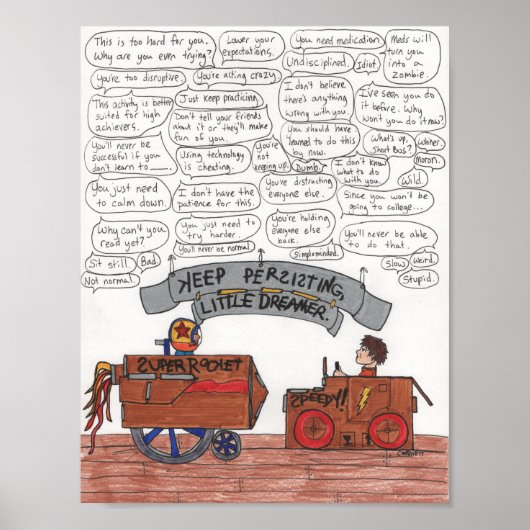 This is too hard for you.
Why are you even trying?
Lower your
expectations.
You need medication.
Meds will
turn you
into a
zombie.
Undisciplined.
Idiot.
You're too disruptive.
You're acting crazy.
I don't believe
there's anything
wrong with you.
I've seen you do
it before. Why
won't you do it now?
This activity is better
suited for high
achievers.
Just keep practicing.
Don't tell your friends
about it or they'll make
fun of you.
You should have
learned to do this
by now.
What's up,
Short Bus?
Whiner.
You'll never be
successful if you
don't learn to ____.
Using technology
is cheating.
You're
not
keeping up.
Dumb.
I don't know
what to do
with you.
Moron.
Wild.
You just need
to calm down.
I don't have the
patience for this.
You're distracting
everyone else.
Since you won't be
going to college...
Why can't you
read yet?
You just need to
try harder.
You're holding
everyone else
back.
You'll never be able
to do that.
You'll never be normal.
Simpleminded.
Sit still.
Bad
Slow
Weird.
Not normal.
Stupid.
KEEP PERSISTING,
LITTLE DREAMER.
SUPER ROCKET
SPEEDY!